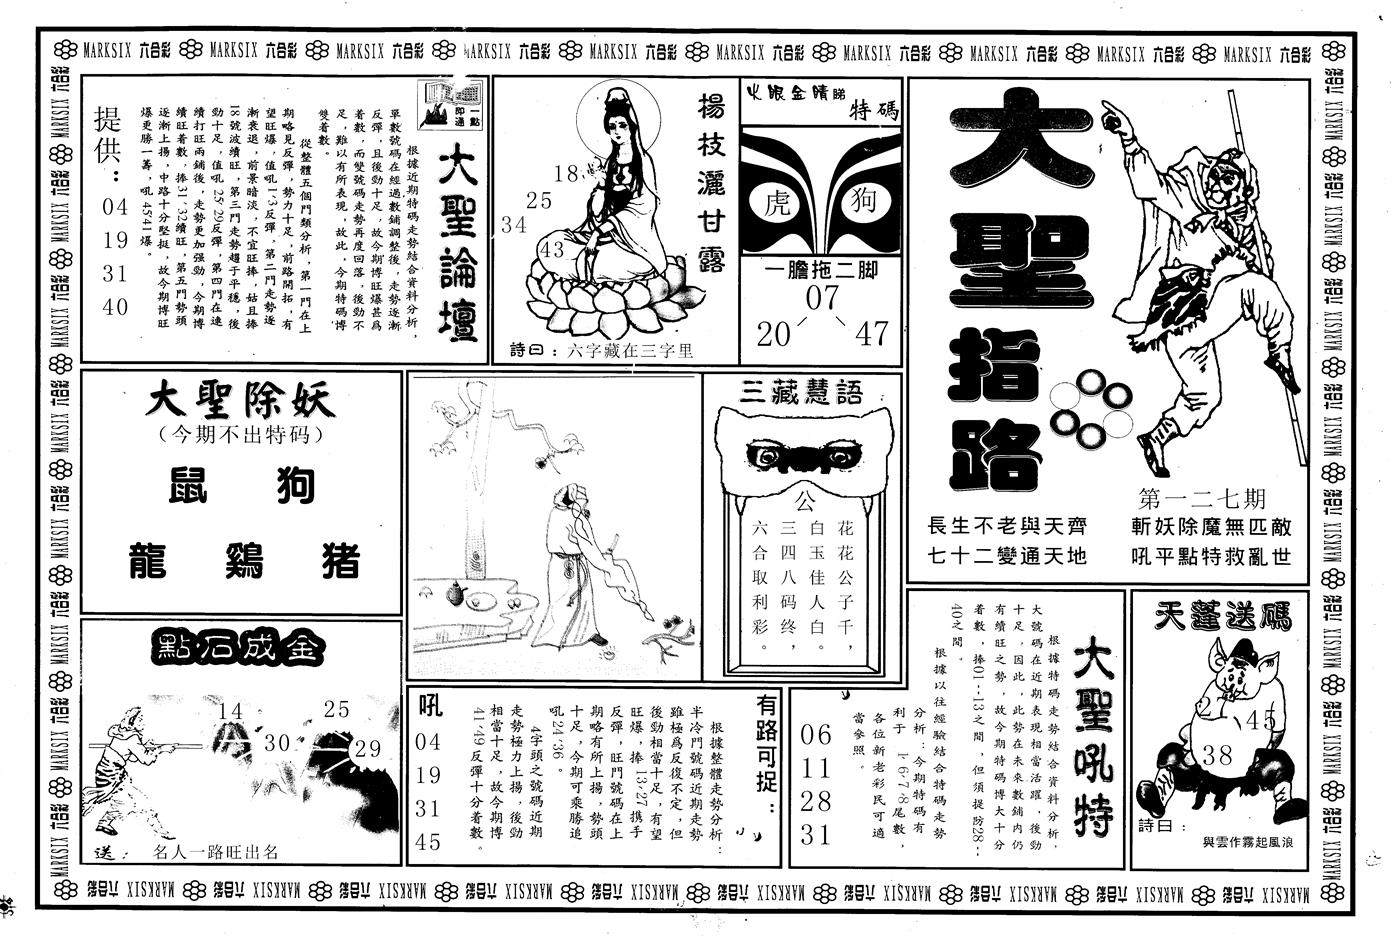 MARKSIX 六合彩 MARKSIX 六合彩 MARKSIX 六合彩 MARKSIX 六合彩 MARKSIX 六合彩 MARKSIX 六合彩 MARKSIX 六合彩 MARKSIX 六合彩 MARKSIX 六合彩 MARKSIX 六合彩
大聖指路
第一二七期
斬妖除魔無匹敵
吼平點特救亂世
長生不老與天齊
七十二變通天地
火眼金睛睇
特碼
虎
狗
一膽拖二脚
07
20
47
楊枝灑甘露
18
25
34
43
詩曰：六字藏在三字里
一點即通
大聖論壇
根據近期特碼走勢結合資料分析，
單數號碼在經過數鋪調整後，走勢逐漸
反彈，且後勁十足，故今期博旺爆甚爲
着數，而雙號碼走勢再度回落，後勁不
足，難以有所表現，故此，今期特碼博
雙着數。
從整體五個門類分析，第一門在上
期略見反彈，勢力十足，前路開拓，有
望旺爆，值吼1·3反彈，第二門走勢逐
漸衰退，前景暗淡，不宜旺捧，姑且捧
18號波續旺，第三門走勢趨于平穩，後
勁十足，值吼25·29反彈，第四門在連
續打旺兩鋪後，走勢更加强勁，今期博
續旺着數，捧31·32續旺，第五門勢頭
逐漸上揚，中路十分堅挺，故今期博旺
爆更勝一籌，吼45·41爆。
提供：
04
19
31
40
大聖除妖
（今期不出特码）
鼠 狗
龍 鷄 猪
三藏慧語
公
花花公子千，
白玉佳人白。
三四八码终，
六合取利彩。
點石成金
14
25
30
29
送： 名人一路旺出名
有路可捉：
根據整體走勢分析：
半冷門號碼近期走勢
雖極爲反復不定，但
後勁相當十足，有望
旺爆，捧13·27携手
反彈，旺門號碼在上
期略有所上揚，勢頭
十足，今期可乘勝追
吼24·36。
4字頭之號碼近期
走勢極力上揚，後勁
相當十足，故今期博
41·49反彈十分着數。
吼
04
19
31
45
大聖吼特
根據特碼走勢結合資料分析，
大號碼在近期表現相當活躍，後勁
十足，因此，此勢在未來數鋪内仍
有續旺之勢，故今期特碼博大十分
着數，捧01--13之間，但須提防28--
40之間。
根據以往經驗結合特碼走勢
分析：今期特碼有
利于 1·6·7·8尾數，
各位新老彩民可適
當參照。
06
11
28
31
天蓬送碼
45
38
詩曰：
與雲作霧起風浪